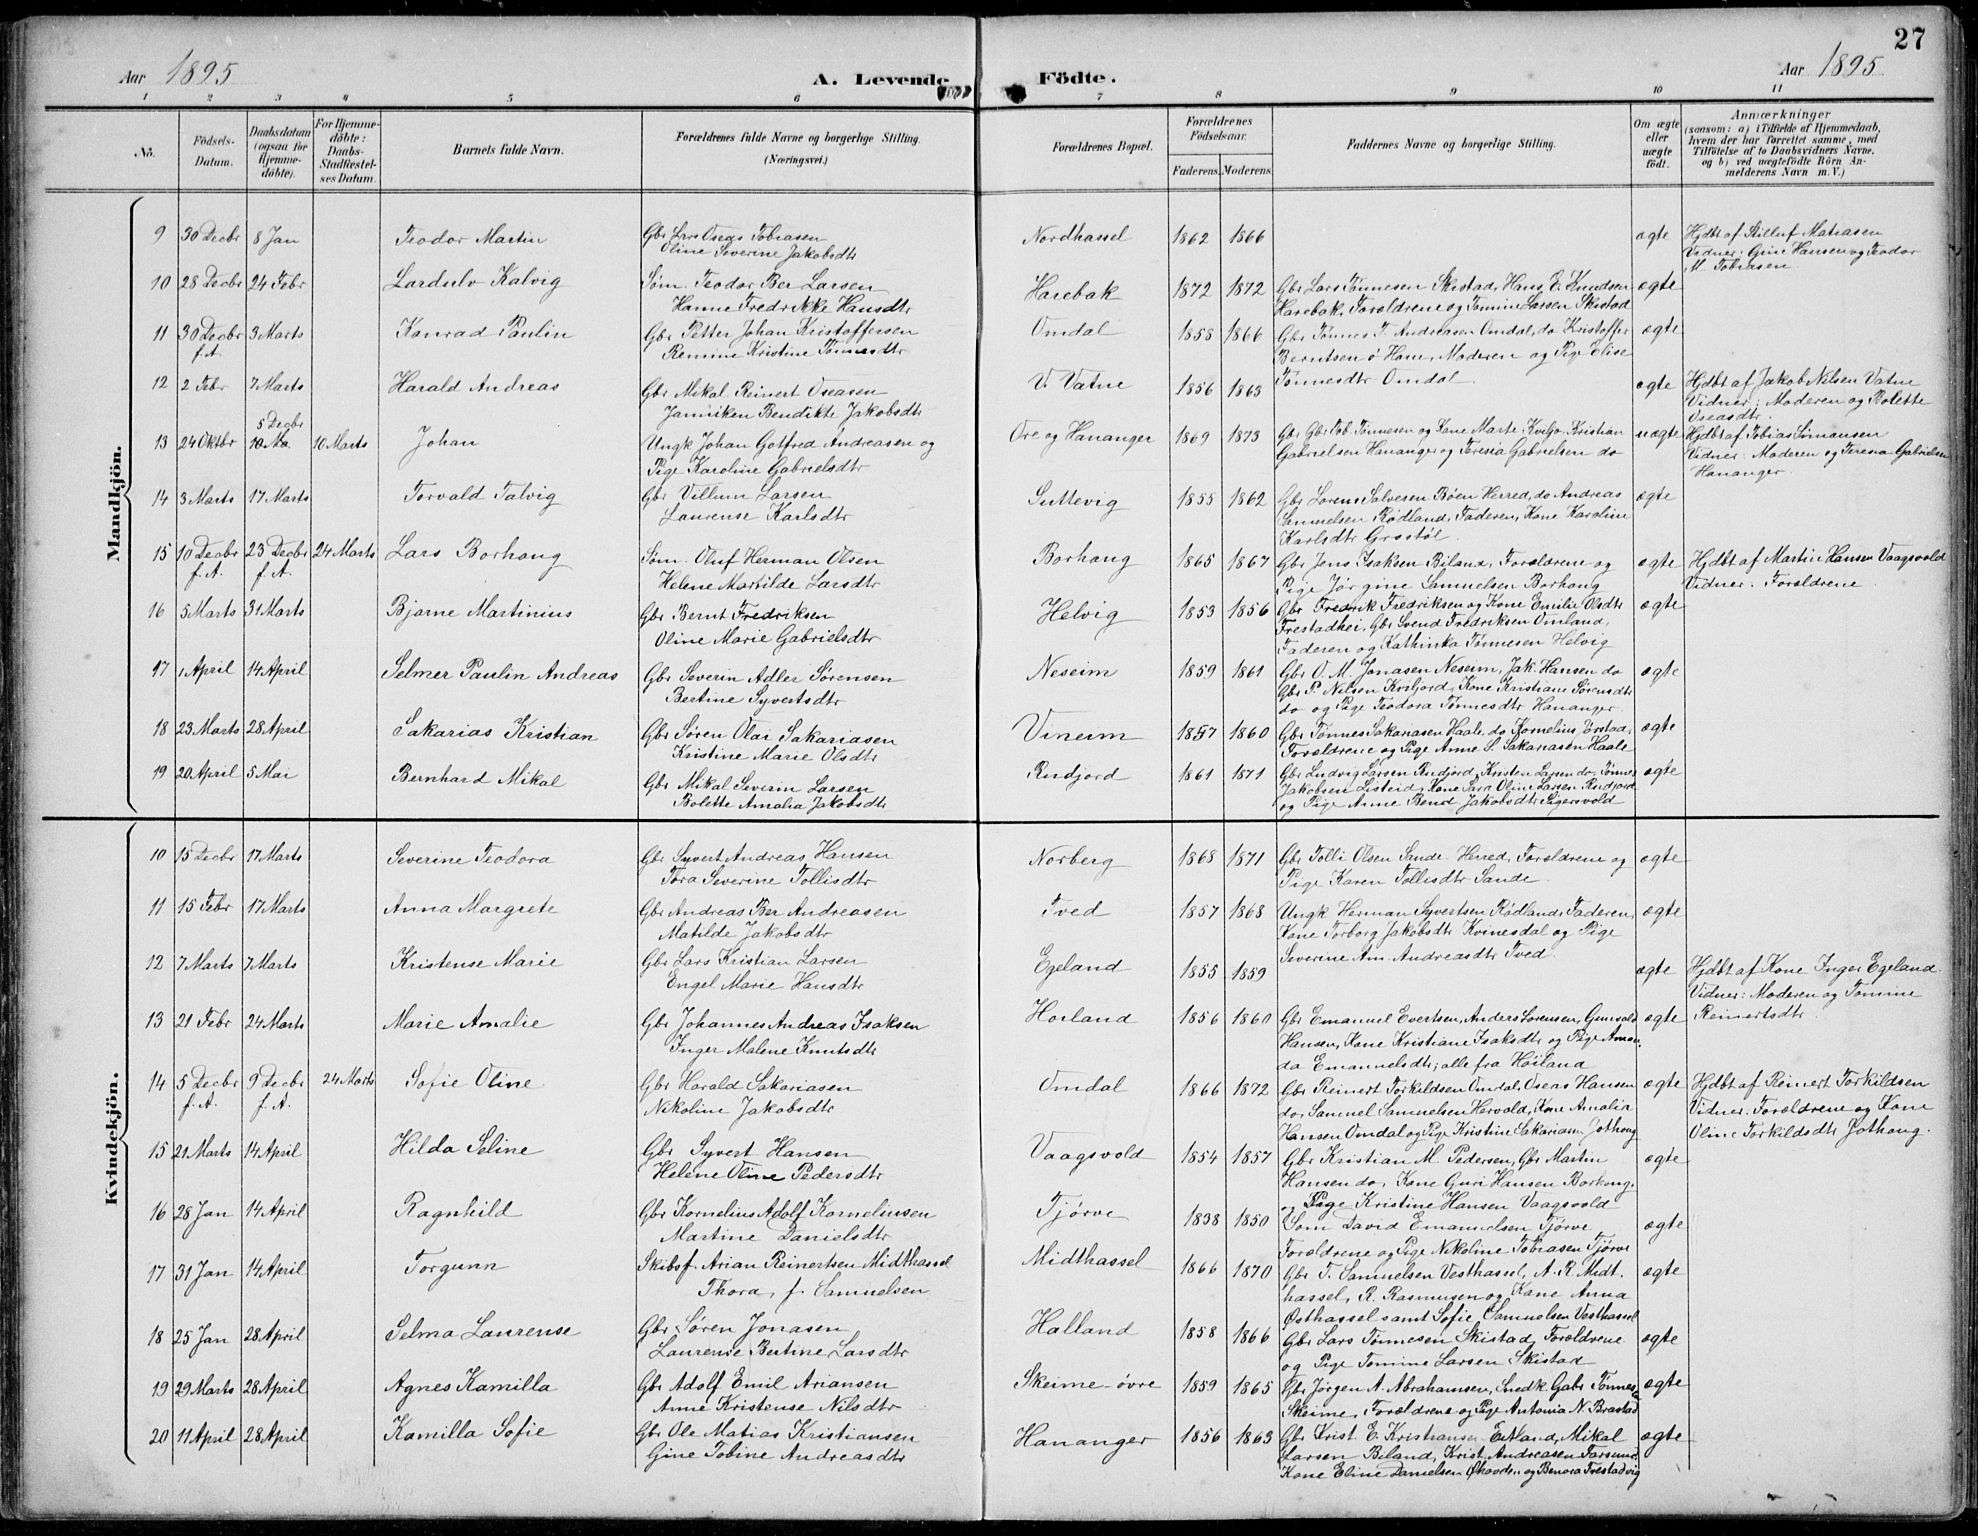 27
Aar 1895
A. Levende Födte.
Aar 1895
1 2 3 4 5 6 7 8 9 10 11
No.
Födsels-Datum.
Daabsdatum (ogsaa for Hjemmedöbte).
For Hjemmedöbte: Daabs-Stadfæstelses Datum.
Barnets fulde Navn.
Forældrenes fulde Navne og borgerlige Stilling.
(Næringsvei.)
Forældrenes Bopæl.
Forældrenes Födselsaar.
Faderens. Moderens.
Faddernes Navne og borgerlige Stilling.
Om ægte eller uægte födt.
Anmærkninger
(saasom: a) i Tilfælde af Hjemmedaab, hvem der har forrettet samme, med Tilföielse af to Daabsvidners Navne, og b) ved uægtefödte Börn Anmelderens Navn m. V.)
Mandkjön.
9 30 Decbr 8 Jan Teodor Martin Gbr Lars Oseas Tobiasen Nordhassel 1862 1866 ægte Hjdbt af Stilluf Matiasen
Oline Severine Jakobsdtr Vidner: Gine Hansen og Teodor
M. Tobiasen
10 28 Decbr 24 Febr Lardulv Kalvig Søm. Teodor Ber Larsen Harebak 1872 1872 Gbr Lars Tønnesen Skistad, Hans E. Knudsen ægte
Hanne Fredrikke Hansdtr Harebak, Forældrene og Tomine Larsen Skistad
11 30 Decbr 3 Marts Konrad Paulin Gbr Petter Johan Kristoffersen Omdal 1858 1866 Gbr Tønnes T. Andreasen Omdal, do Kristoffer ægte
f.A. Remine Kristine Tønnesdtr Berntsen ö Hane, Moderen og Pige Elise
12 2 Febr 7 Marts Harald Andreas Gbr Mikal Reinert Oseasen V. Vatne 1856 1863 Tønnesdtr Omdal. ægte Hjdbt af Jakob Nilsen Vatne
Janniken Bendikte Jakobsdtr Vidner: Moderen og Bolette
5 Decbr Oseasdtr.
13 24 Oktbr 10 Ma 10 Marts Johan Ungk Johan Gotfred Andreasen og Ore og Hananger 1869 1873 Gbr Gbr Tob. Tønnesen og Kone Marte Kviljo, Kristian uægte Hjdbt af Tobias Simonsen
Pige Karoline Gabrielsdtr Gabrielsen Hananger og Teresia Gabrielsen do Vidner: Moderen og Teresia Gabrielsen
Hananger.
14 3 Marts 17 Marts Torvald Talvig Gbr Villum Larsen Suttevig 1855 1862 Gbr Lorens Salvesen Bøen Herred, do Andreas ægte
Laurense Karlsdtr Samuelsen Rødland, Faderen, Kone Karoline
Karlsdtr Grostøl.
15 10 Decbr 23 Decbr 24 Marts Lars Borhaug Søm. Oluf Herman Olsen Borhaug 1865 1867 Gbr Jens Isaksen Biland, Forældrene og ægte Hjdbt af Martin Hansen Vaagsvold
f.A. f.A. Helene Martilde Larsdtr Pige Jørgine Samuelsen Borhaug Vidner: Forældrene
16 5 Marts 31 Marts Bjarne Martinius Gbr Bernt Fredriksen Helvig 1853 1856 Gbr Fredrik Fredriksen og Kone Emilie Olsdtr ægte
Oline Marie Gabrielsdtr Frestadhei, Gbr Svend Fredriksen Omland,
Faderen og Kathinka Tønnesen Helvig
17 1 April 14 April Selmer Paulin Andreas Gbr Severin Adler Sørensen Neseim 1859 1861 Gbr O. M. Jonasen Neseim, Jak. Hansen do ægte
Bertine Syvertsdtr Gbr P. Nilsen Kviljord, Kone Kristiane Sørensdtr
do og Pige Teodora Tønnesdtr Hananger.
18 23 Marts 28 April Sakarias Kristian Gbr Søren Olai Sakariasen Vineim 1857 1860 Gbr Tønnes Sakariasen Haale, do Kornelius Jørstad, ægte
Kristine Marie Olsdtr Forældrene og Pige Anne S. Sakariasen Haale
19 20 April 5 Mai Bernhard Mikal Gbr Mikal Severin Larsen Rudjord 1861 1871 Gbr Ludvig Larsen Rudjord, Kristen Larsen do, Tønnes ægte
Bolette Amalia Jakobsdtr Jakobsen Listeid, Kone Sara Oline Larsen Rudjord
og Pige Anne Bend. Jakobsdtr Sigersvold
Kvindekjön.
10 15 Decbr 17 Marts Severine Teodora Gbr Syvert Andreas Hansen Norberg 1868 1871 Gbr Tolli Olsen Sande Herred, Forældrene og ægte
Tora Severine Tollisdtr Pige Karen Tollisdtr Sande.
11 15 Febr 17 Marts Anna Margrete Gbr Andreas Ber Andreasen Tved 1857 1868 Ungk Herman Syvertsen Rødland, Faderen, ægte
Matilde Jakobsdtr Kone Torborg Jakobsdtr Kvinesdal og Pige
12 7 Marts 7 Marts Kristense Marie Gbr Lars Kristian Larsen Egeland 1855 1859 Severine Am. Andreasdtr Tved. ægte Hjdbt af Kone Inger Egeland.
Engel Marie Hansdtr Vidner: Moderen og Tomine
13 21 Febr 24 Marts Marie Amalie Gbr Johannes Andreas Isaksen Hoiland 1856 1860 Gbr Emanuel Evertsen, Anders Sørensen, Gunvald ægte Reinertsdtr.
Inger Malene Knutsdtr Hansen, Kone Kristiane Isaksdtr og Pige Aman-
da Emanuelsdtr; alle fra Høiland
14 5 Decbr 9 Decbr 24 Marts Sofie Oline Gbr Harald Sakariasen Omdal 1866 1872 Gbr Reinert Torkildsen Omdal, Oseas Hansen ægte Hjdbt af Reinert Torkildsen
f.A. f.A. Nikoline Jakobsdtr do, Samuel Samuelsen Hervold, Kone Amalia Vidner: Forældrene og Kone
Hansen Omdal og Pige Kristine Sakariasen Jothaug Oline Torkildsdtr Jothaug.
15 21 Marts 14 April Hilda Seline Gbr Syvert Hansen Vaagsvold 1854 1857 Gbr Kristian M. Pedersen, Gbr Martin ægte
Helene Oline Pedersdtr Hansen do, Kone Guri Hansen Borhaug.
og Pige Kristine Hansen Vaagsvold
16 28 Jan 14 April Ragnhild Gbr Kornelius Adolf Korneliusen Tjørve 1838 1850 Søm David Emanuelsen Tjørve ægte
Martine Danielsdtr Forældrene og Pige Nikoline Tobiasen Tjørve
17 31 Jan 14 April Torgunn Skibsf. Arian Reinertsen Midthassel Midthassel 1866 1870 Gbr T. Samuelsen Vesthassel, A. R. Midt- ægte
Thora, f. Samuelsen hassel, R. Rasmusen og Kone Anna
Østhassel samt Sofie Samuelsen Vesthassel
18 25 Jan 28 April Selma Laurense Gbr Søren Jonasen Halland 1858 1866 Gbr Lars Tønnesen Skistad, Forældrene ægte
Laurense Bertine Larsdtr og Pige Tomine Larsen Skistad
19 29 Marts 28 April Agnes Kamilla Gbr Adolf Emil Ariansen Skeime øvre 1859 1865 Gbr Jørgen A. Abrahamsen, Snedk. Gabr Tønnes. ægte
Anne Kristense Nilsdtr Skeime, Forældrene og Pige Antonia N. Brastad
20 11 April 28 April Kamilla Sofie Gbr Ole Matias Kristiansen Hananger 1856 1863 Gbr Krist. E. Kristiansen Eitland, Mikal ægte
Gine Tobine Andreasdtr Larsen Biland, Krist. Andreasen Farsund.
Kone Eline Danielsen og Benora Frestadvig